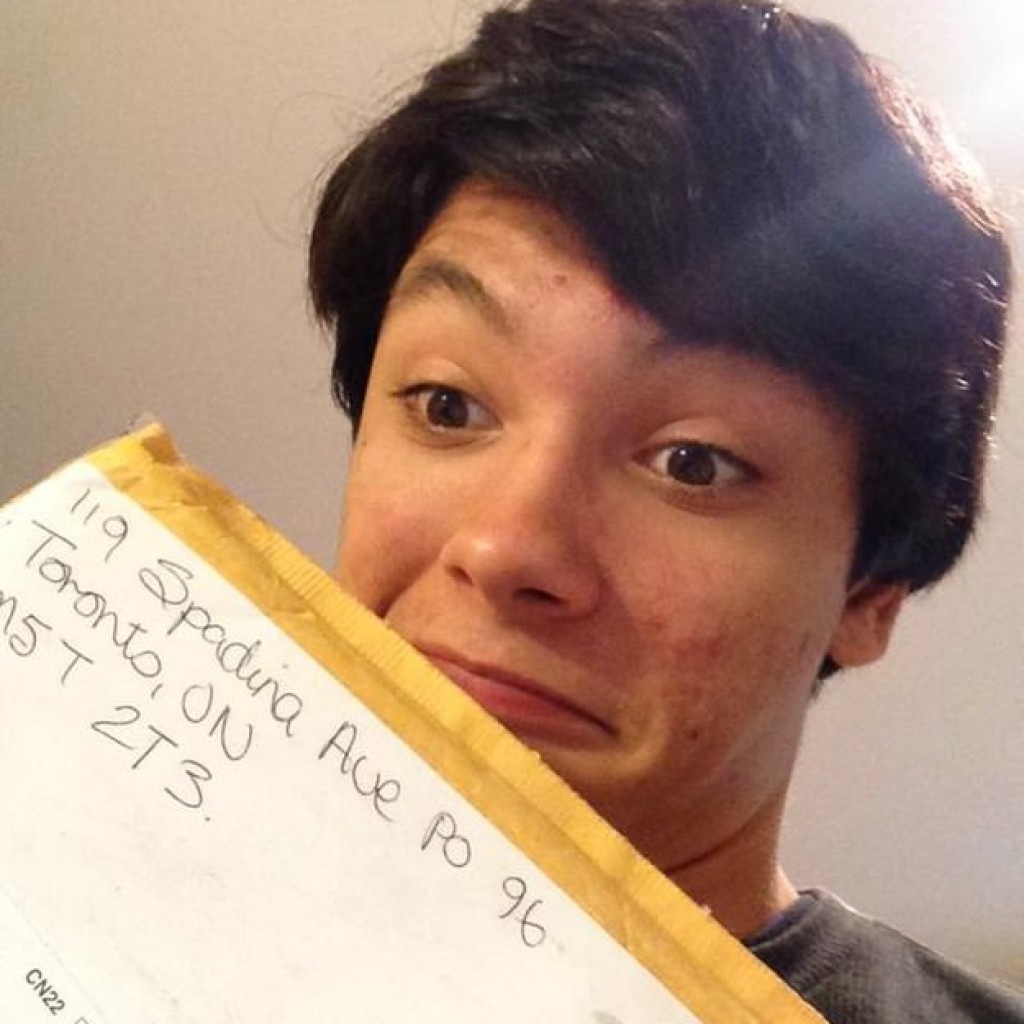 119 Spadina Ave PO 96
Toronto, ON
M5T 2T3.
CN22